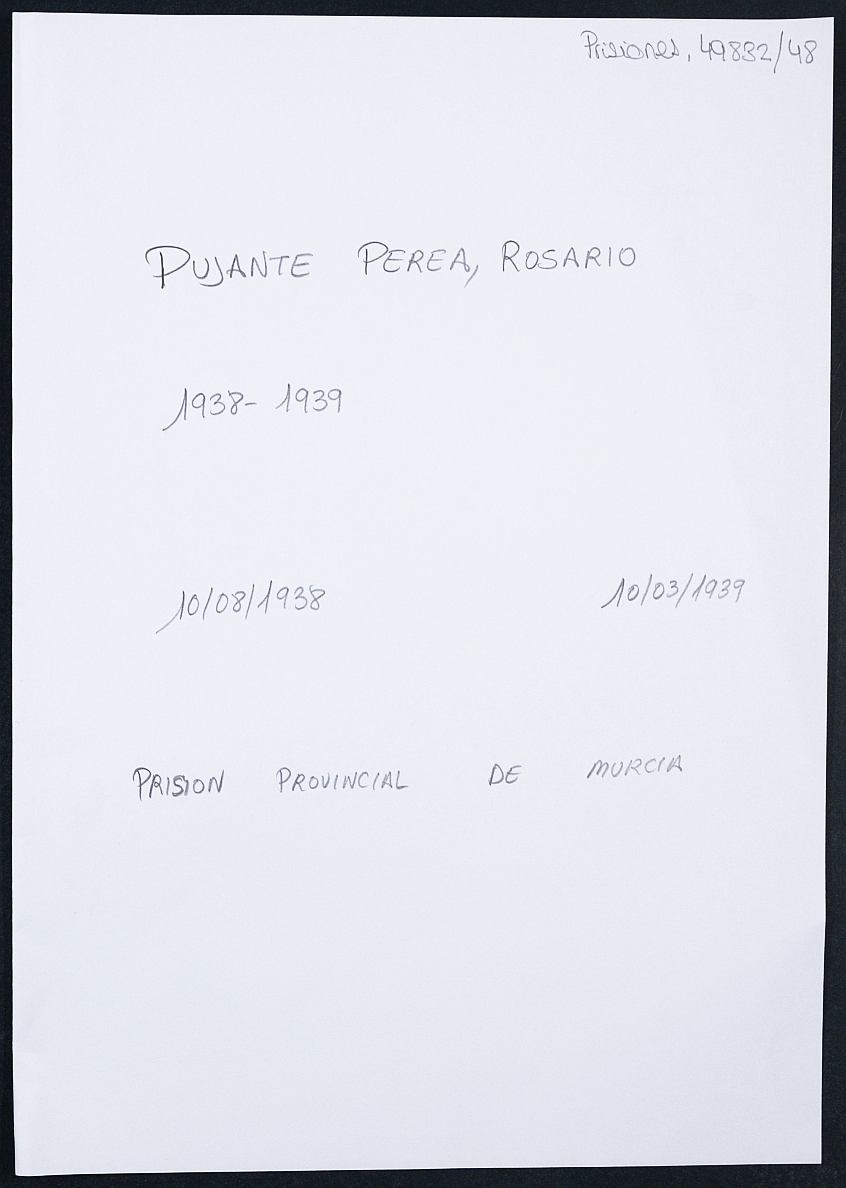 Prisiones, 49832/48
PUJANTE PEREA, ROSARIO
1938- 1939
10/08/1938 10/03/1939
PRISION PROVINCIAL DE MURCIA